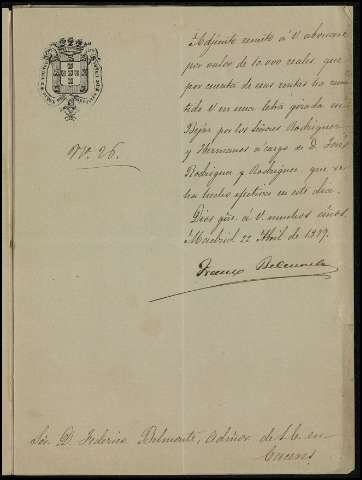 Nº. 26.
Adjunto remito á V. abonaré
por valor de 10.000 reales, que
por cuenta de sus rentas ha remi-
tido V. en una letra girada en
Bejar por los Señores Rodriguez
y Hermanos á cargo de D. José
Rodriguez y Rodriguez, que se
ha hecho efectiva en este dia.
Dios gūe. á V. muchos años.
Madrid 22 Abril de 1879.
Franco
Sor. D. Federico Belmonte, Admor. de S. E. en
Caceres